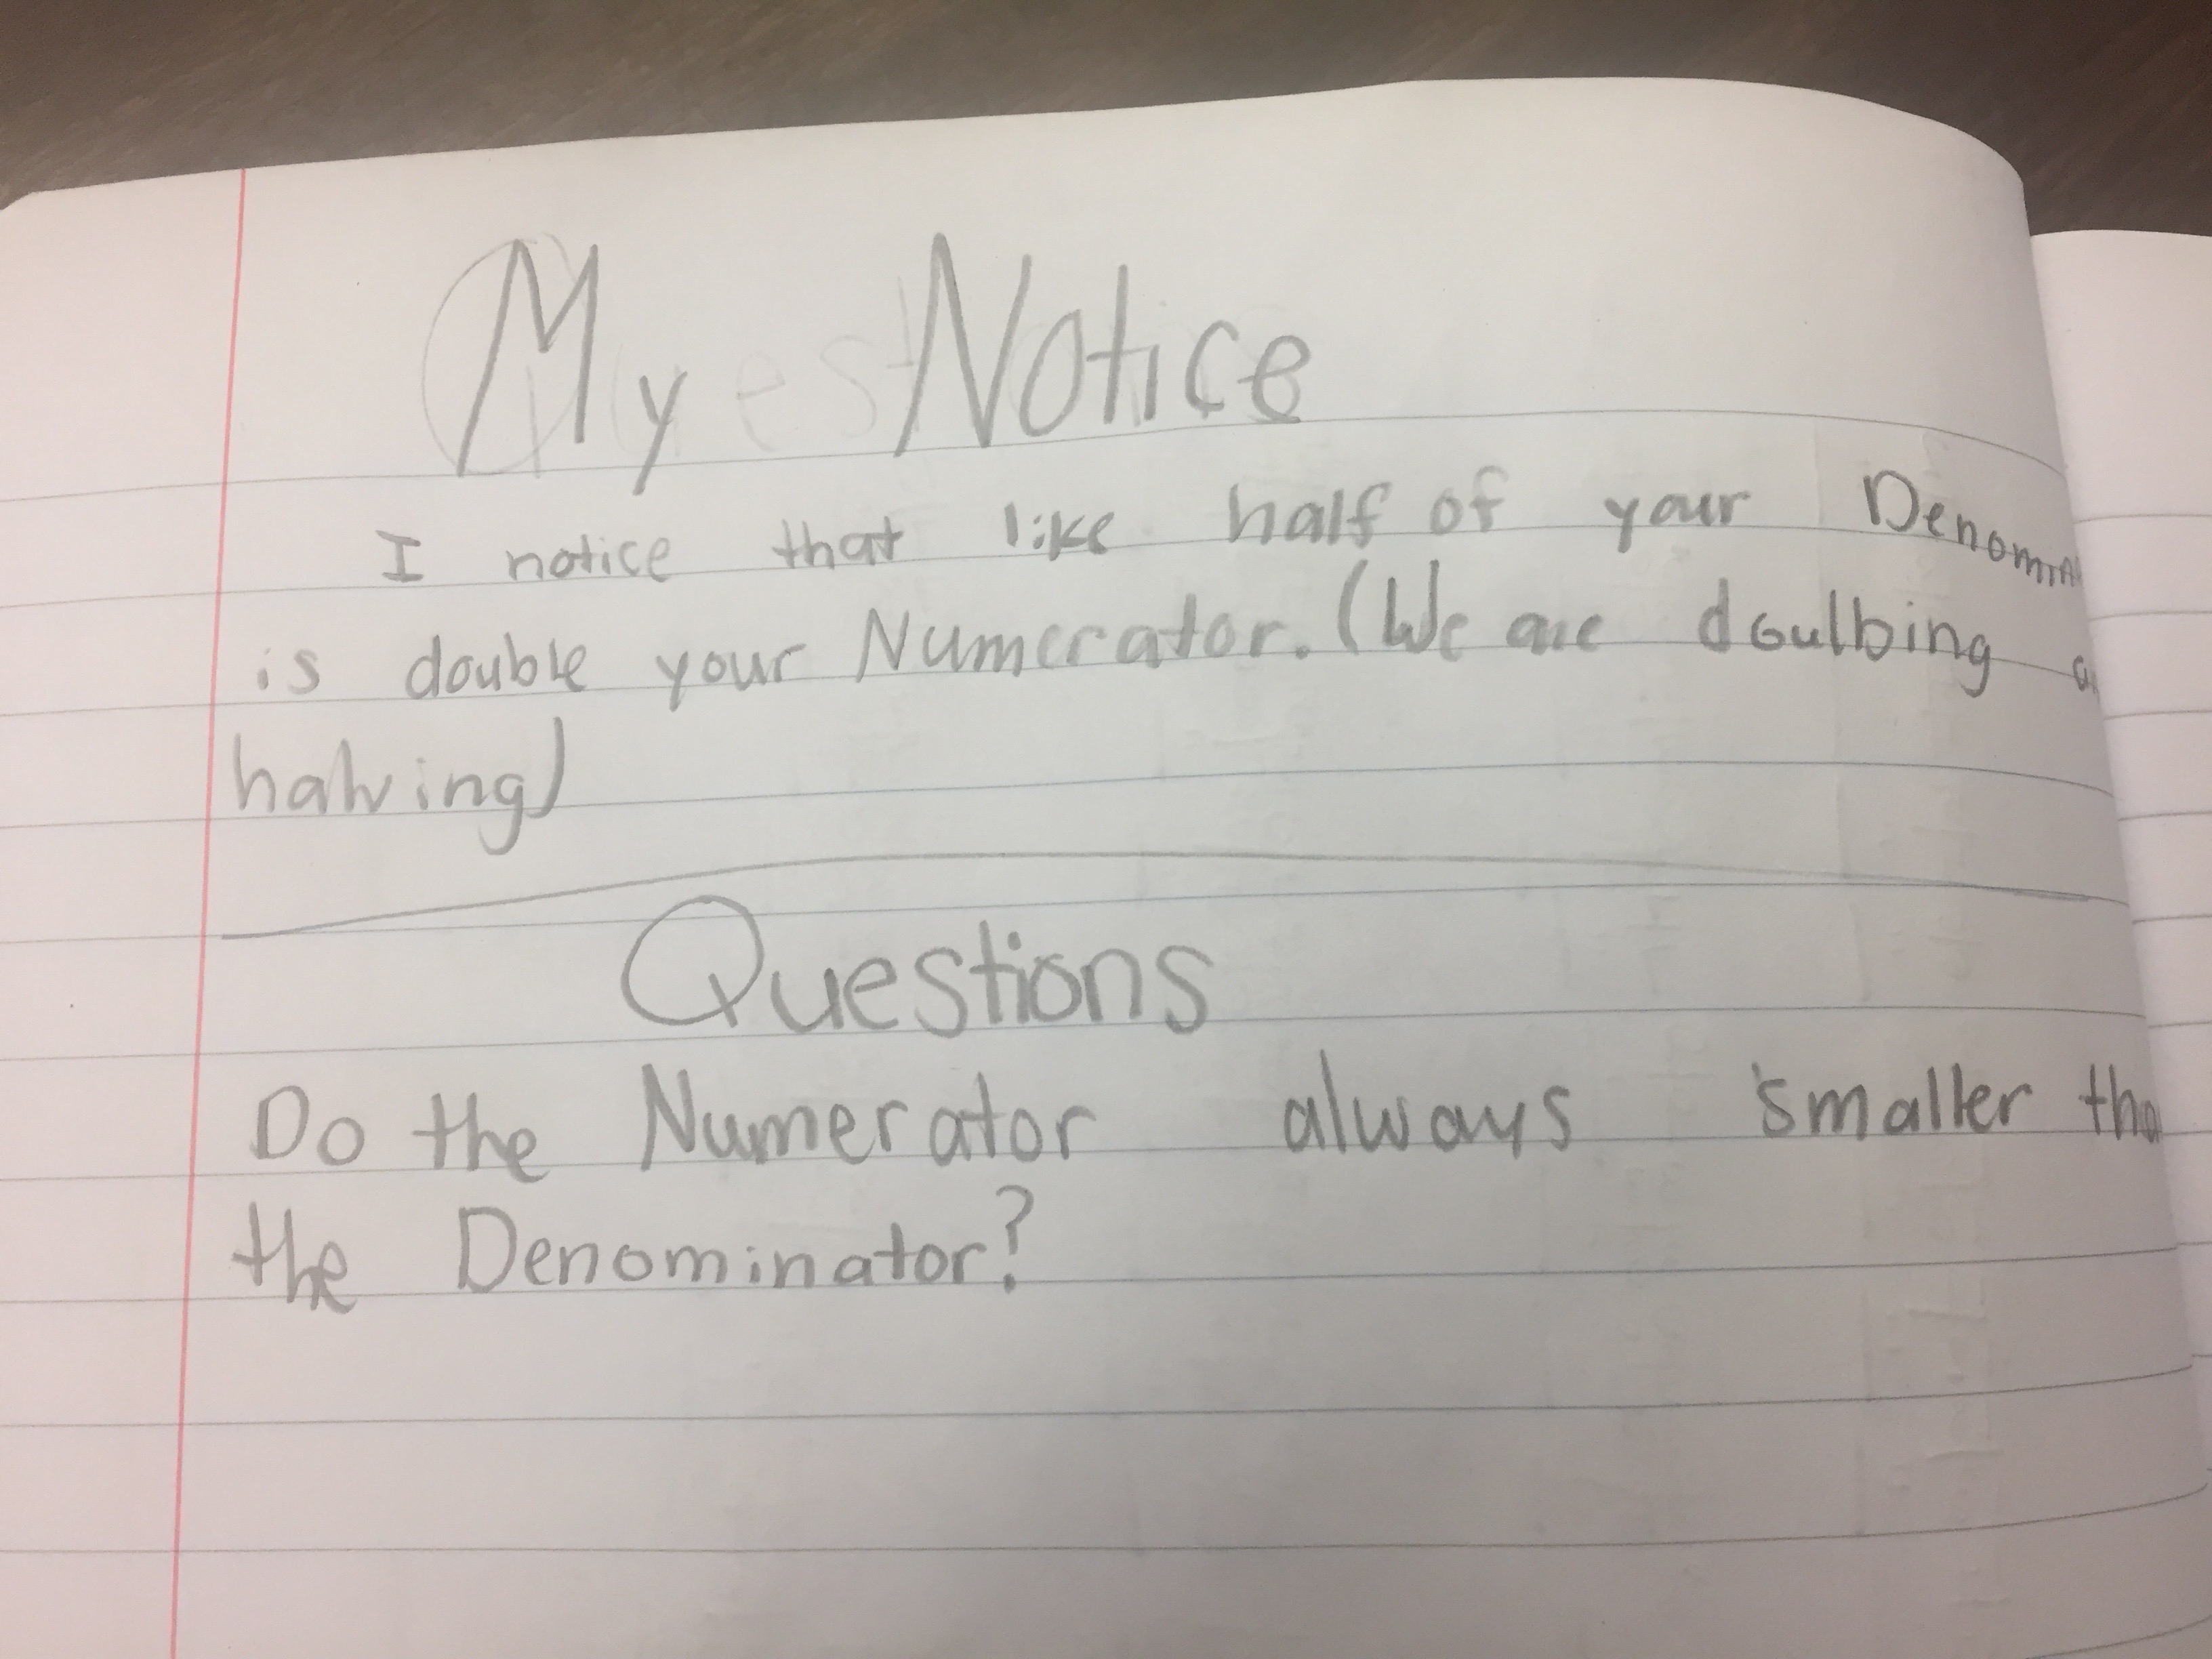 My Notice
I notice that like half of your Denomin
is double your Numerator. (We are doulbing a
halving)
Questions
Do the Numerator always smaller tha
the Denominator?